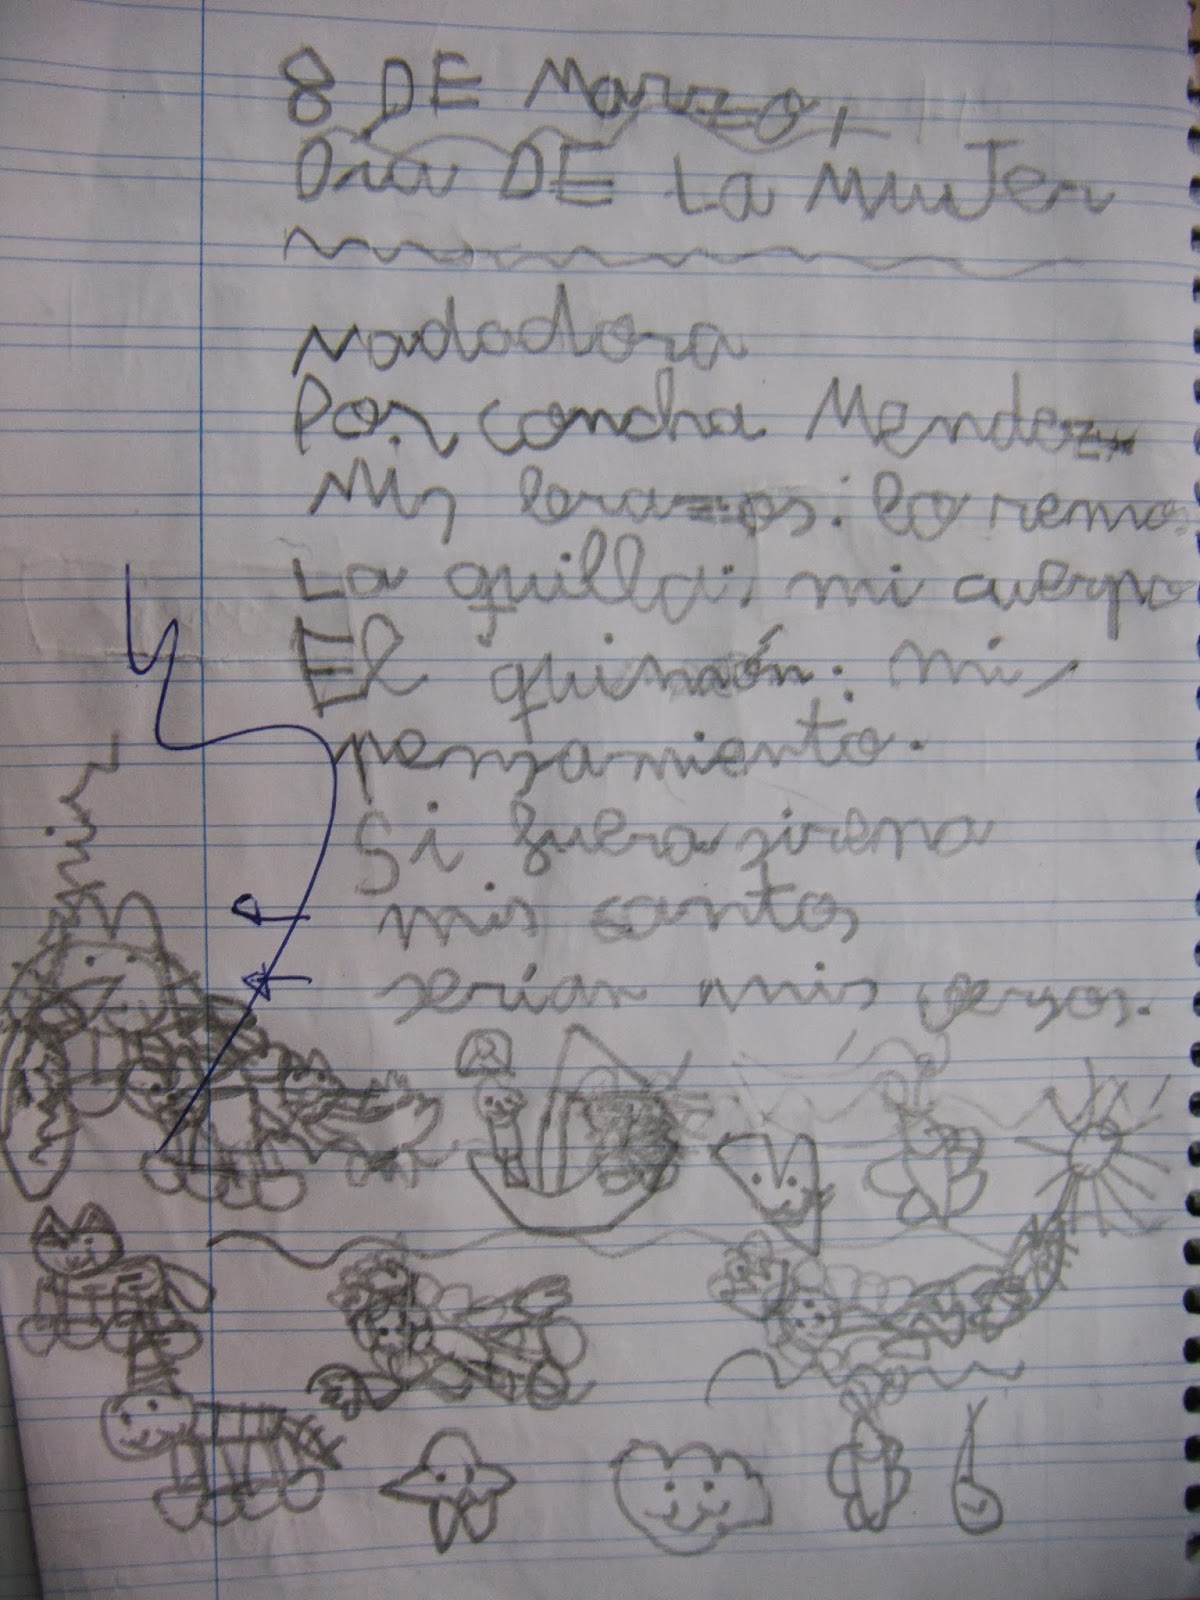 8 DE Marzo,
Dia DE La MuJer
Nadadora
Por concha Mendez
Mis brazos: lo remo
La quilla: mi cuerpo
El quimón: mi
pensamiento.
Si fuera sirena
mis cantos
serían mis versos.